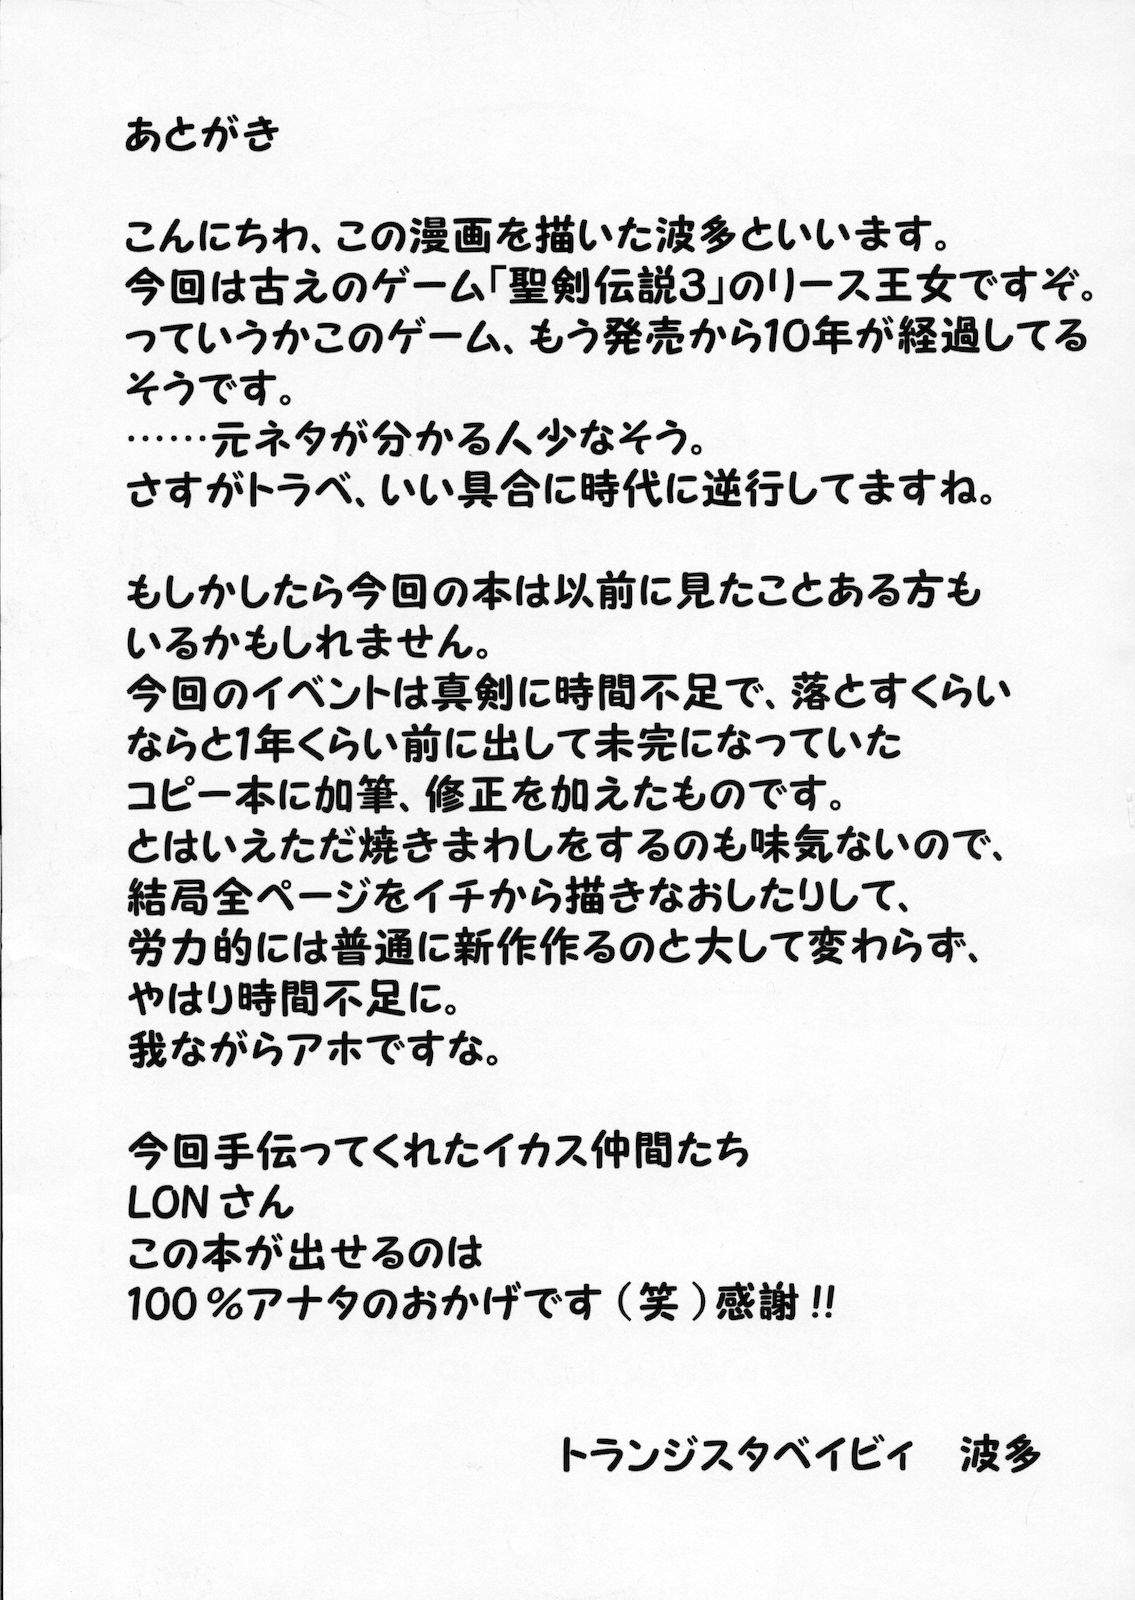 あとがき
こんにちわ、この漫画を描いた波多といいます。
今回は古えのゲーム「聖剣伝説3」のリース王女ですぞ。
っていうかこのゲーム、もう発売から10年が経過してる
そうです。
……元ネタが分かる人少なそう。
さすがトラベ、いい具合に時代に逆行してますね。
もしかしたら今回の本は以前に見たことある方も
いるかもしれません。
今回のイベントは真剣に時間不足で、落とすくらい
ならと1年くらい前に出して未完になっていた
コピー本に加筆、修正を加えたものです。
とはいえただ焼きまわしをするのも味気ないので、
結局全ページをイチから描きなおしたりして、
労力的には普通に新作作るのと大して変わらず、
やはり時間不足に。
我ながらアホですな。
今回手伝ってくれたイカス仲間たち
LONさん
この本が出せるのは
100％アナタのおかげです（笑）感謝!!
トランジスタベイビィ　波多